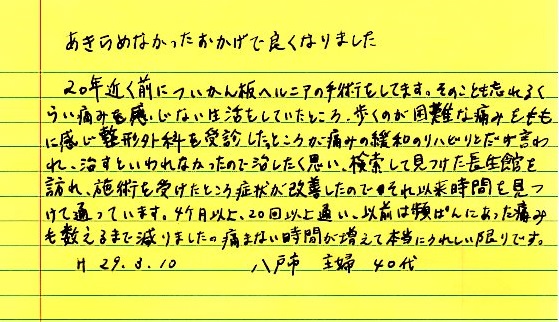 あきらめなかったおかげで良くなりました
20年近く前についかん板ヘルニアの手術をしてます。そのことも忘れるく
らい痛みを感じない生活をしていたところ、歩くのが困難な痛みをもも
に感じ整形外科を受診したところが痛みの緩和のリハビリとだけ言わ
れ、治すといわれなかったので治したく思い、検索して見つけた長生館を
訪れ、施術を受けたところ症状が改善したのでそれ以来時間を見つ
けて通っています。4ケ月以上、20回以上通い、以前は頻ぱんにあった痛み
も数えるまで減りましたの痛まない時間が増えて本当にうれしい限りです。
H 29.3.10 八戸市 主婦 40代